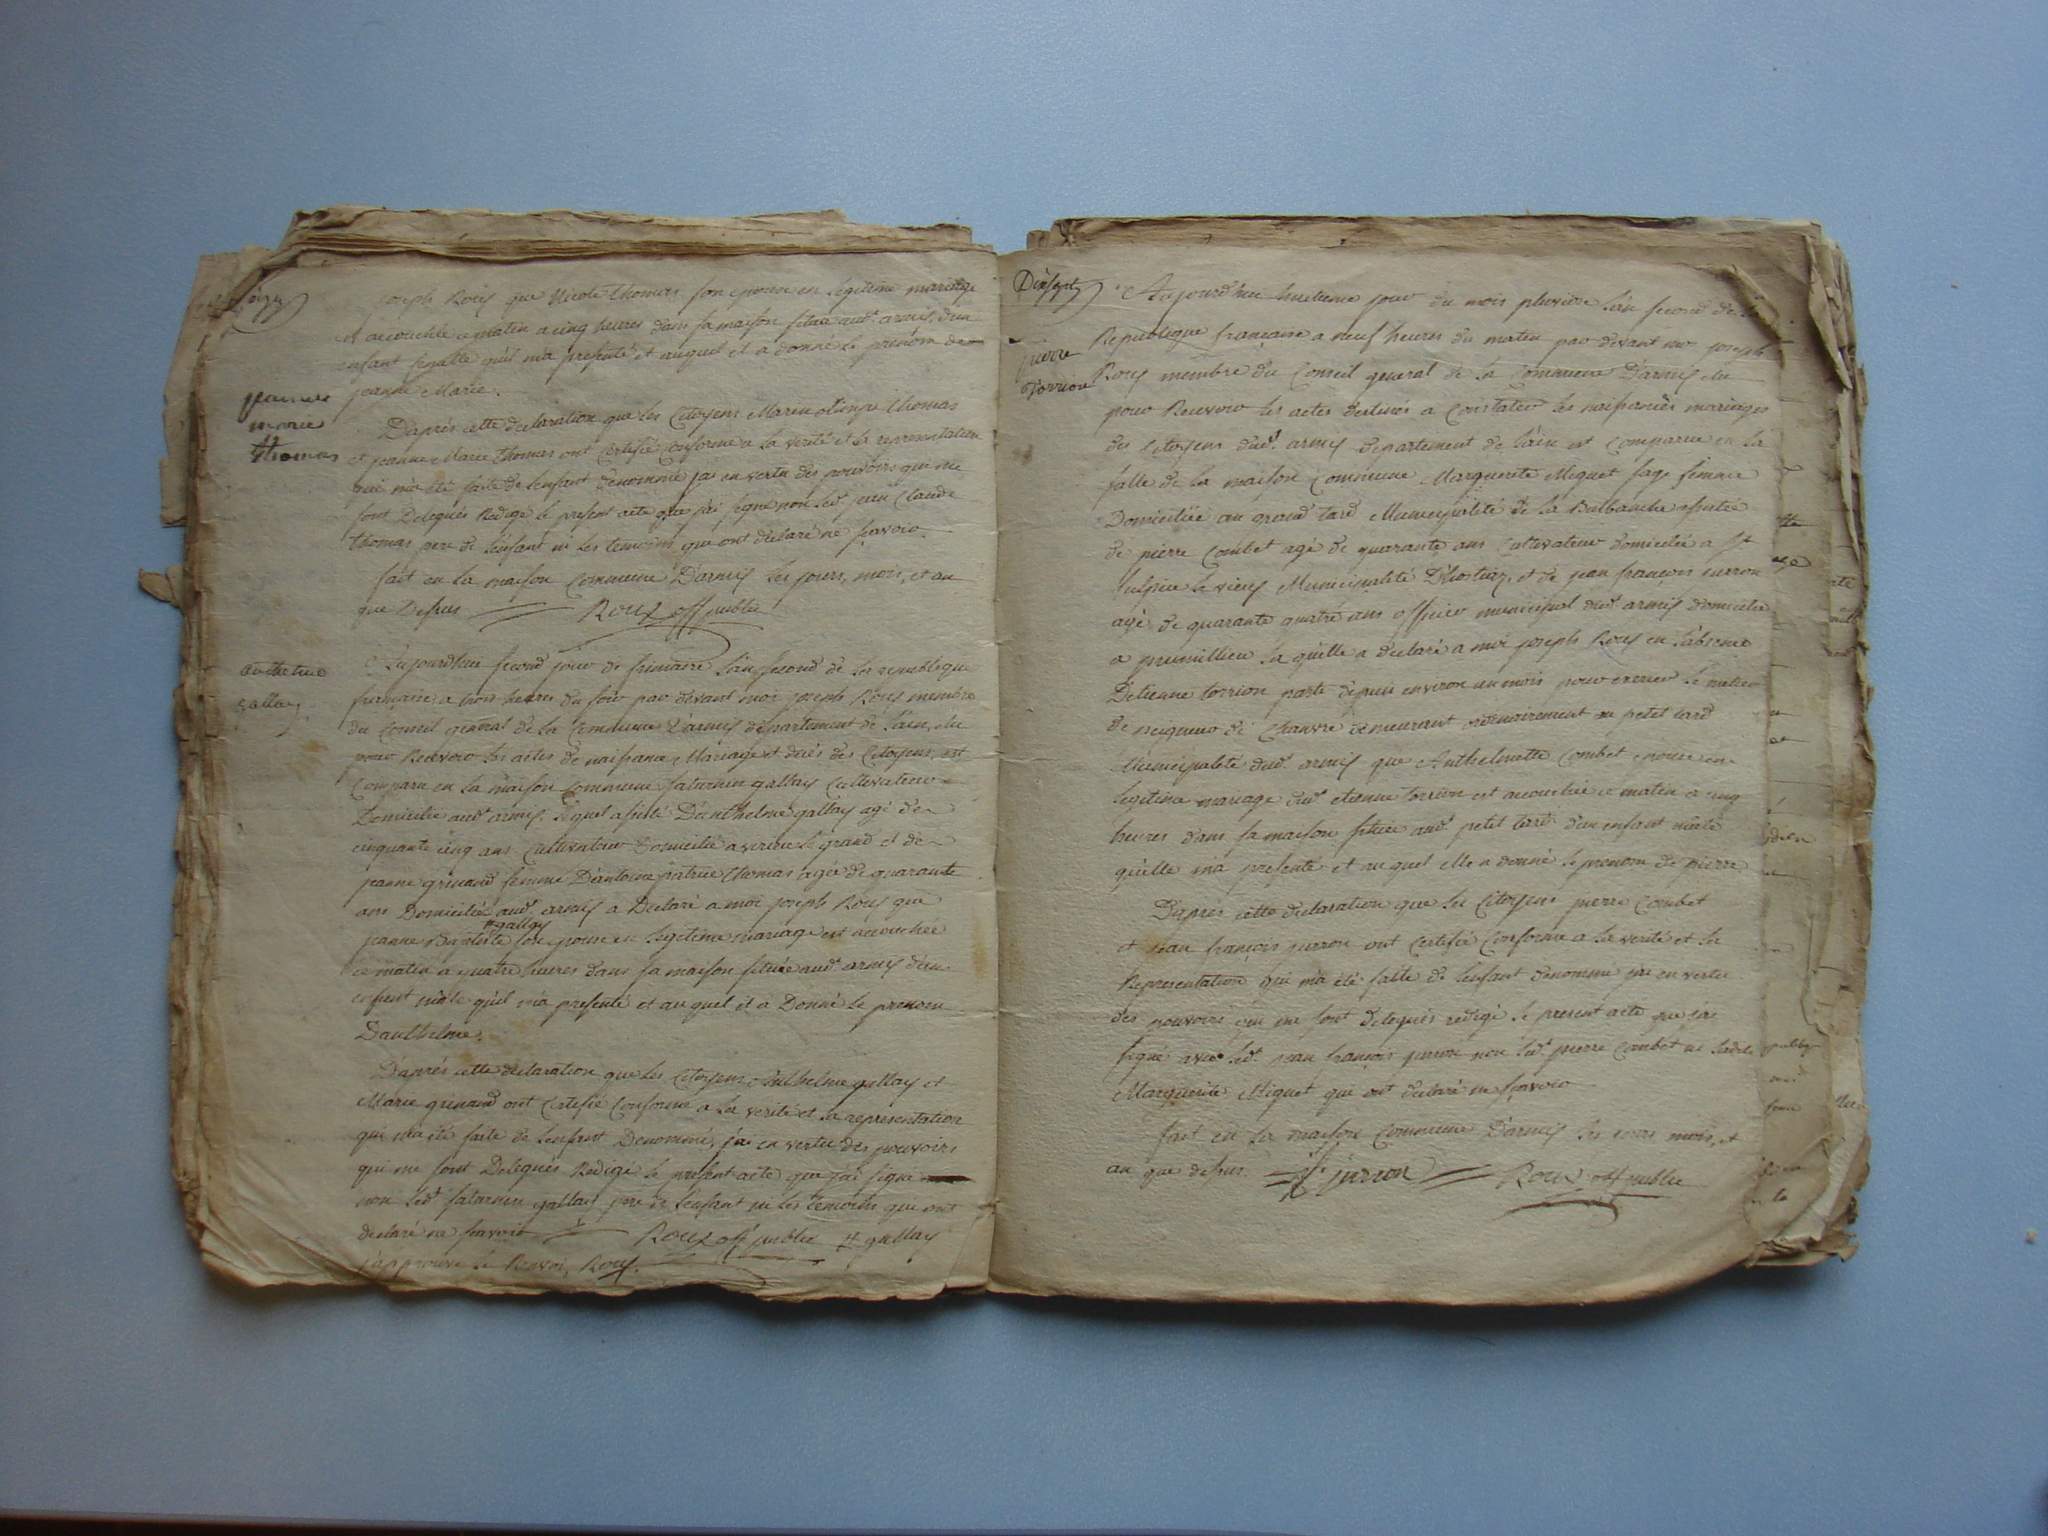 Joseph Roux que Nicole thomas son epouse en legitime mariage
est accouchée ce matin a cinq heures dans sa maison située aud.t armis d'un
enfant femelle qu'il m'a presenté et auquel il a donné le prénom de
jeanne Marie.
jeanne
marie
thomas
D'aprés cette declaration que les Citoyens Marin olimpe thomas
et jeanne Marie thomas ont certifié conforme a la verité et la representation
qui m'a été faite de l'enfant denommé j'ai en vertu des pouvoirs qui me
sont Delegués Redigé le present acte que j'ai signé non led.t jean Claude
thomas pere de l'enfant ni les temoins que ont declaré ne sçavoir.
fait en la maison Commune D'armis les jours, mois, et an
que Dessus Roux off public
anthelme
gallay
Aujourd'hui second jour de frimaire l'an second de la republique
francaise a trois heures du soir par devant moi joseph Roux membre
du Conseil general de la Commune D'armis département de l'ain, élu
pour Recevoir les actes de naissance Mariage et decés des Citoyens, est
Comparu en la maison Commune saturnin gallay Cultivateur
Domicilié aud.t armis. Lequel assisté D'anthelme gallay agé de
cinquante cinq ans Cultivateur Domicilié a virieu le grand et de
jeanne grinand femme D'antoine patrice thomas agée de quarante
ans Domiciliée aud.t armis a Declaré a moi joseph Roux que
# gallay
jeanne Baptiste son epouse en legitime mariage est accouchée
ce matin a quatre heures dans sa maison située aud.t armis d'un
enfant mâle qu'il m'a presenté et au quel il a Donné le prenom
Danthelme.
D'aprés cette declaration que les Citoyens Anthelme gallay et
Marie grinand ont certifié Conforme a la verité et la representation
qui m'a été faite de l'enfant Denommé, j'ai en vertu des pouvoirs
qui me sont Delegués Redigé le present acte que j'ai signé
non led.t saturnin gallay pere de l'enfant ni les temoins que ont
declaré ne sçavoir Roux off public # gallay
j'approuve le Renvoi, Roux.
Dixsept
pierre
torrion
Aujourd'hui huitieme jour du mois pluviose l'an second de la
Republique française a neuf heures du matin par devant moi joseph
Roux membre du Conseil general de la Commune D'armis élu
pour Recevoir les actes destinés a Constater les naissances mariages
des Citoyens dud.t armis departement de l'ain est Comparue en la
salle de la maison Commune Marguerite Miguet sage femme
Domiciliée au grand tard Municipalité de la Balbanche assistée
de pierre Combet agé de quarante ans Cultivateur domicilié a St
sulpice le vieux Municipalité D'hostiaz, et de jean françois jurron
agé de quarante quatre ans officier municipal dud.t armis domicilié
a premillieu la quelle a declaré a moi joseph Roux en l'absence
D'etienne torrion parti depuis environ un mois pour exercer le metier
de peigneur de Chanvre demeurant ordinairement au petit tard
Municipalité dud.t armis que Anthelmette Combet epouse en
legitime mariage dud.t etienne torrion est accouchée ce matin a cinq
heures dans sa maison située aud.t petit tard d'un enfant mâle
qu'elle m'a presenté et au quel elle a donné le prenom de pierre
D'aprés cette declaration que les Citoyens pierre Combet
et jean françois jurron ont certifié Conforme a la verité et la
Representation qui m'a été faite de l'enfant denommé j'ai en vertu
des pouvoirs qui me sont Delegués redigé le present acte que j'ai
signé avec led.t jean françois jurron non led.t pierre Combet ni ladite
Marguerite Miguet qui ont declaré ne sçavoir
fait en la maison Commune D'armis les jours mois, et
an que dessus. jurron Roux off public